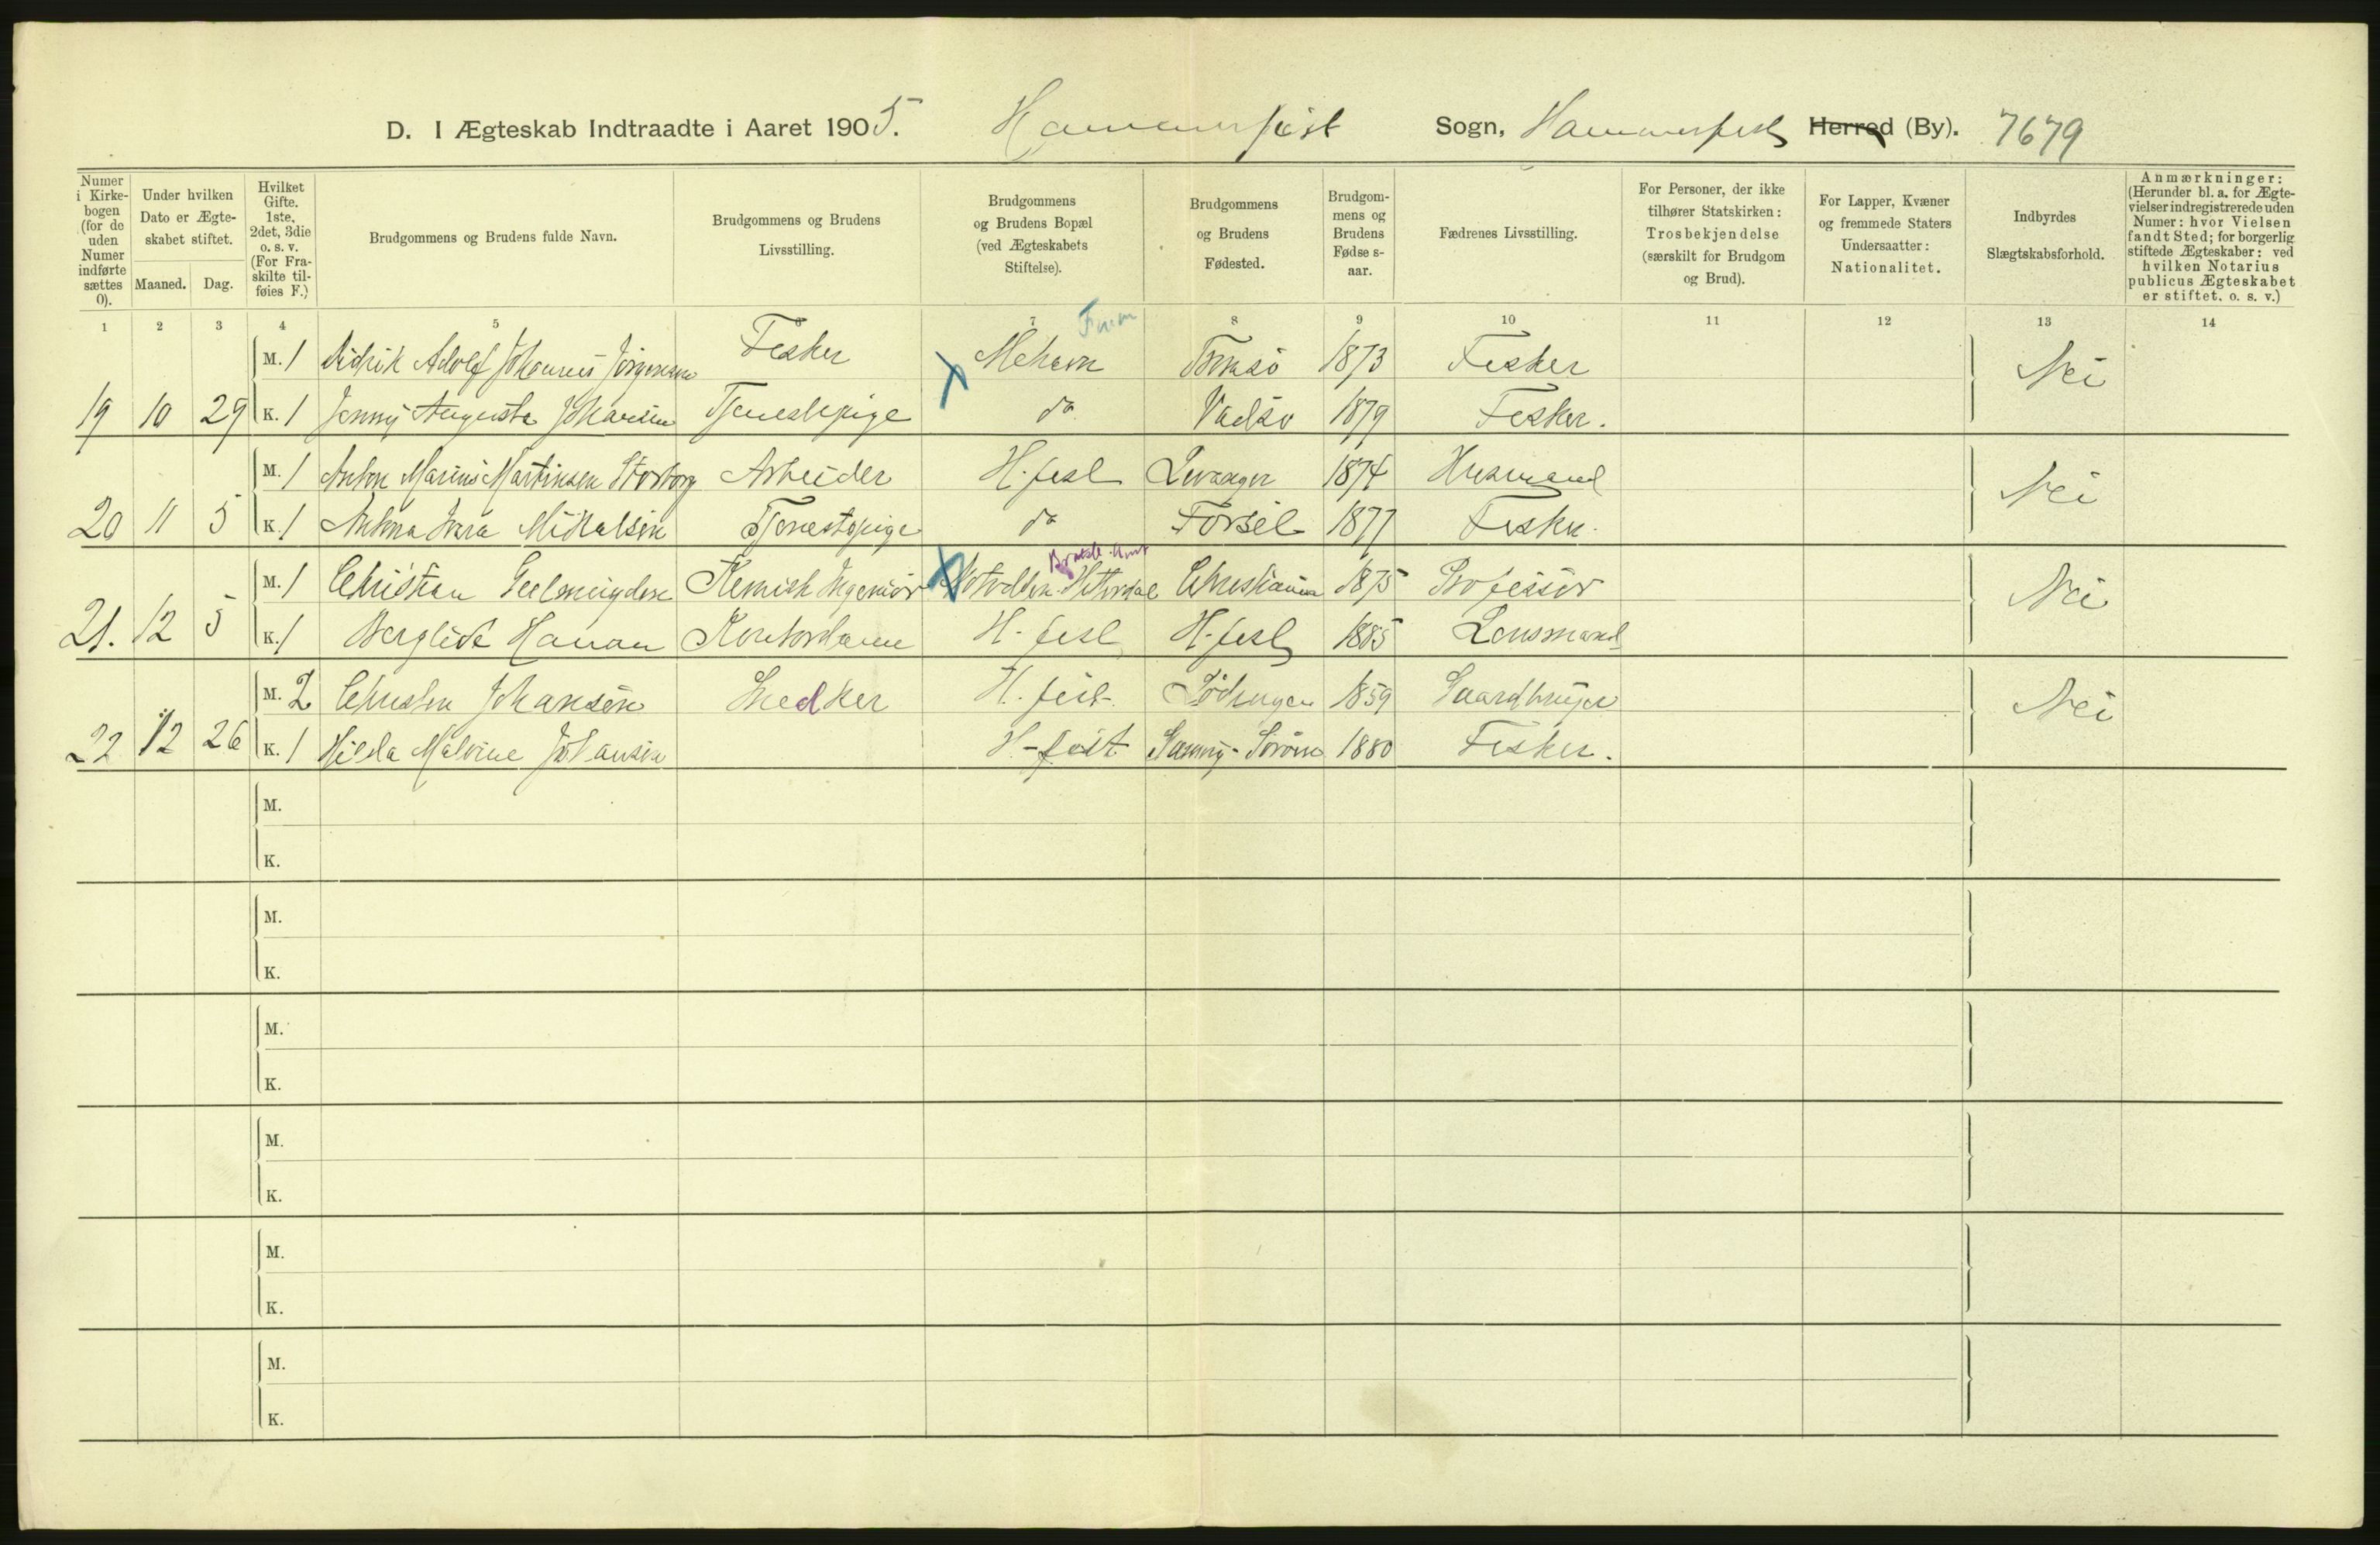 D. I Ægteskab Indtraadte i Aaret 1905. Hammerfest Sogn, Hammerfest Herred (By). 7679
Numer i Kirkebogen (for de uden Numer indførte sættes 0).
Under hvilken Dato er Ægteskabet stiftet.
Maaned. Dag.
Hvilket Gifte. 1ste, 2det, 3die o. s. v. (For Fraskilte tilføies F.)
Brudgommens og Brudens fulde Navn.
Brudgommens og Brudens Livsstilling.
Brudgommens og Brudens Bopæl (ved Ægteskabets Stiftelse).
Brudgommens og Brudens Fødested.
Brudgommens og Brudens Fødse s-aar.
Fædrenes Livsstilling.
For Personer, der ikke tilhører Statskirken: Trosbekjendelse (særskilt for Brudgom og Brud).
For Lapper, Kvæner og fremmede Staters Undersaatter: Nationalitet.
Indbyrdes Slægtskabsforhold.
Anmærkninger: (Herunder bl. a. for Ægtevielser indregistrerede uden Numer: hvor Vielsen fandt Sted; for borgerlig stiftede Ægteskaber: ved hvilken Notarius publicus Ægteskabet er stiftet. o. s. v.)
1 2 3 4 5 6 7 8 9 10 11 12 13 14
M. 1 Didrik Adolf Johannes Jörgensen Fisker Mehavn Tromsö 1873 Fisker Nei
19 10 29 K. 1 Jenny Augusta Johansen Tjenestepige do Vadsö 1879 Fisker.
M. 1 Anton Marius Martinsen Storborg Arbeider H.fest Levanger 1874 Husmand Nei
20 11 5 K. 1 Mikalsen Tjenestepige do Forsöl 1877 Fisker.
Bratsb. Amt
M. 1 Christian Geelmuyden Kemisk Ingeniör Notodden Hitterdal Christiania 1875 Professor Nei
21. 12 5 K. 1 Bergliot Hanan Kontordame H.fest H.fest 1885 Lensmand
M. 2 Christen Johansen Snedker H.fest. Lödingen 1859 Gaardbruger Nei
22 12 26 K. 1 Hilda Malvine Johansen H-fest 1880 Fisker.
M.
K.
M.
K.
M.
K.
M.
K.
M.
K.
M.
K.